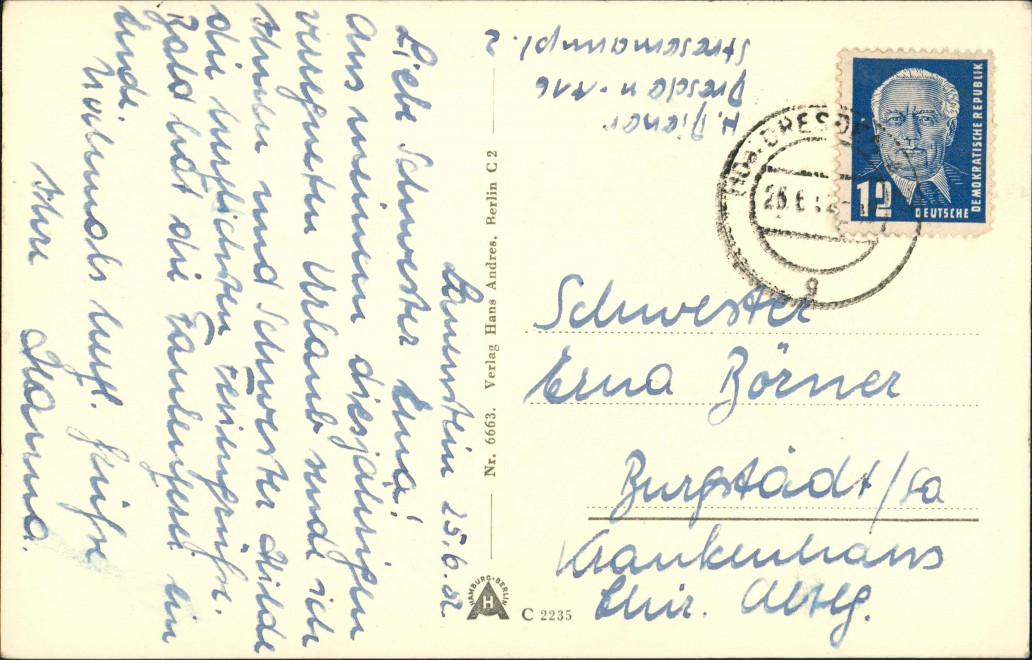 Bärenstein 25.6.52
Liebe Schwester Erna!
Aus meinem diesjährigen
vergnügten Urlaub sende ich
Ihnen und Schwester Hilde
die herzlichsten Feriengrüße.
Bald hat die Faulenzerei ein
Ende.
Nochmals herzl. Grüße
Ihre Hanna.
H. Diener
Dresden - A16
Stresemannpl.
2
DRESDEN
25.6.52
g
12
DEUTSCHE
DEMOKRATISCHE REPUBLIK
Schwester
Erna Börner
Burgstädt/Sa
Krankenhaus
Chir. Abtlg.
Nr. 6663. Verlag Hans Andres, Berlin C 2
HAMBURG-BERLIN
H
A
C 2235